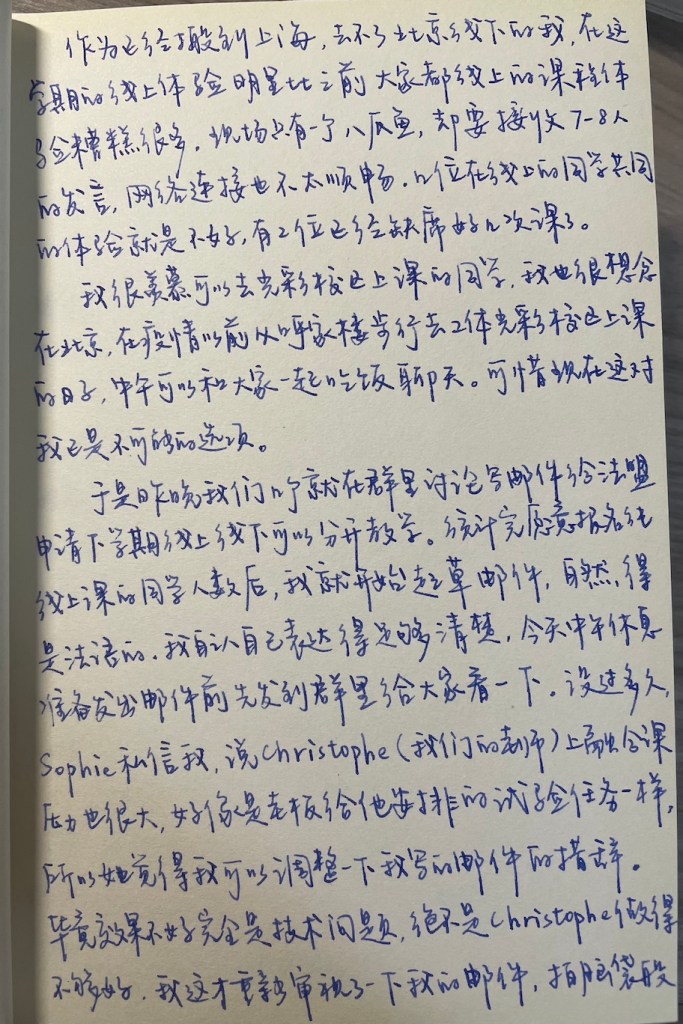 作为已经搬到上海，去不了北京线下的我，在这
学期的线上体验明显比之前大家都线上的课程体
验糟糕很多。现场只有一个八爪鱼，却要接收7-8人
的发言，网络连接也不太顺畅。几位在线上的同学共同
的体验就是不好，有2位已经缺席好几次课了。
我很羡慕可以去光彩校区上课的同学，我也很想念
在北京，在疫情以前从呼家楼步行去工体光彩校区上课
的日子，中午可以和大家一起吃饭聊天。可惜现在这对
我已是不可能的选项。
于是昨晚我们几个就在群里讨论写邮件给法盟
申请下学期线上线下可以分开教学。统计完愿意报名纯
线上课的同学人数后，我就开始起草邮件，自然，得
是法语的。我自认自己表达得足够清楚，今天中午休息
准备发出邮件前先发到群里给大家看一下。没过多久，
Sophie私信我，说Christophe（我们的老师）上融合课
压力也很大，好像是老板给他安排的试验任务一样，
所以她觉得我可以调整一下我写的邮件的措辞。
毕竟效果不好完全是技术问题，绝不是Christophe做得
不够好。我这才重新审视了一下我的邮件，拍脑袋般